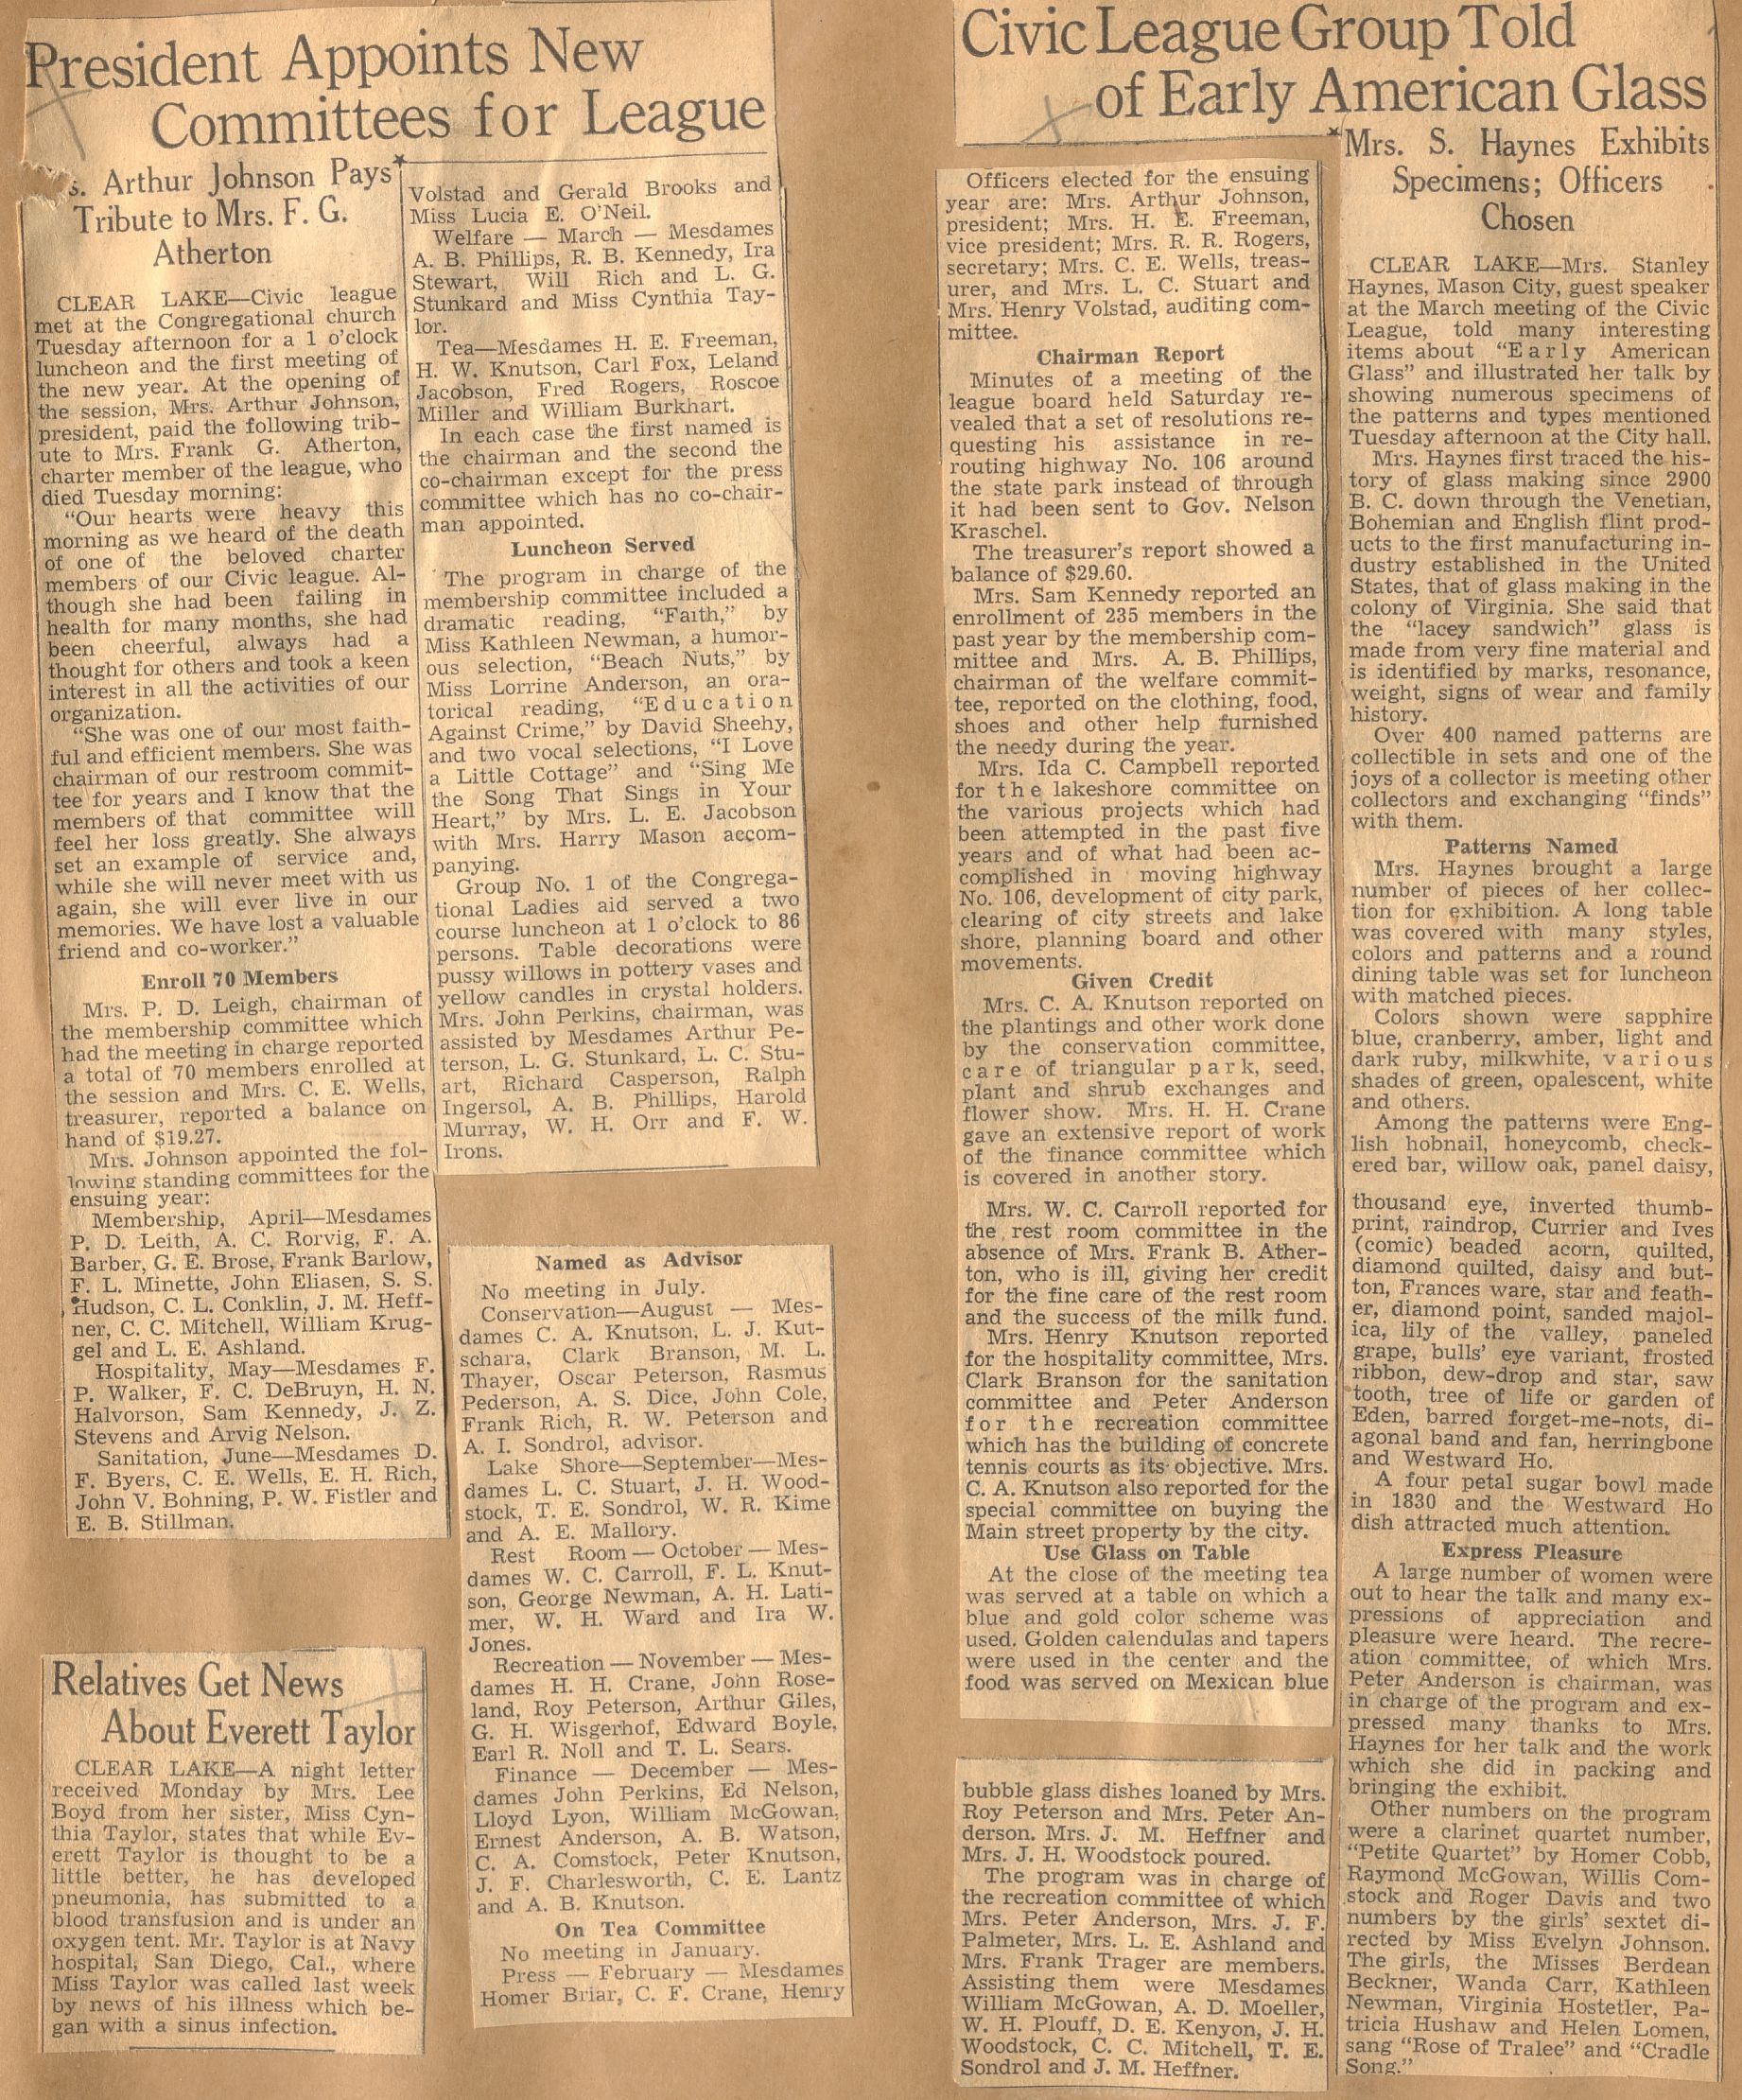 President Appoints New
Committees for League
s. Arthur Johnson Pays
Tribute to Mrs. F. G.
Atherton
CLEAR LAKE—Civic league
met at the Congregational church
Tuesday afternoon for a 1 o'clock
luncheon and the first meeting of
the new year. At the opening of
the session, Mrs. Arthur Johnson,
president, paid the following trib-
ute to Mrs. Frank G. Atherton,
charter member of the league, who
died Tuesday morning:
"Our hearts were heavy this
morning as we heard of the death
of one of the beloved charter
members of our Civic league. Al-
though she had been failing in
health for many months, she had
been cheerful, always had a
thought for others and took a keen
interest in all the activities of our
organization.
"She was one of our most faith-
ful and efficient members. She was
chairman of our restroom commit-
tee for years and I know that the
members of that committee will
feel her loss greatly. She always
set an example of service and,
while she will never meet with us
again, she will ever live in our
memories. We have lost a valuable
friend and co-worker."
Enroll 70 Members
Mrs. P. D. Leigh, chairman of
the membership committee which
had the meeting in charge reported
a total of 70 members enrolled at
the session and Mrs. C. E. Wells,
treasurer, reported a balance on
hand of $19.27.
Mrs. Johnson appointed the fol-
lowing standing committees for the
ensuing year:
Membership, April—Mesdames
P. D. Leith, A. C. Rorvig, F. A.
Barber, G. E. Brose, Frank Barlow,
F. L. Minette, John Eliasen, S. S.
Hudson, C. L. Conklin, J. M. Heff-
ner, C. C. Mitchell, William Krug-
gel and L. E. Ashland.
Hospitality, May—Mesdames F.
P. Walker, F. C. DeBruyn, H. N.
Halvorson, Sam Kennedy, J. Z.
Stevens and Arvig Nelson.
Sanitation, June—Mesdames D.
F. Byers, C. E. Wells, E. H. Rich,
John V. Bohning, P. W. Fistler and
E. B. Stillman.
Named as Advisor
No meeting in July.
Conservation—August — Mes-
dames C. A. Knutson, L. J. Kut-
schara, Clark Branson, M. L.
Thayer, Oscar Peterson, Rasmus
Pederson, A. S. Dice, John Cole,
Frank Rich, R. W. Peterson and
A. I. Sondrol, advisor.
Lake Shore—September—Mes-
dames L. C. Stuart, J. H. Wood-
stock, T. E. Sondrol, W. R. Kime
and A. E. Mallory.
Rest Room — October — Mes-
dames W. C. Carroll, F. L. Knut-
son, George Newman, A. H. Lati-
mer, W. H. Ward and Ira W.
Jones.
Recreation — November — Mes-
dames H. H. Crane, John Rose-
land, Roy Peterson, Arthur Giles,
G. H. Wisgerhof, Edward Boyle,
Earl R. Noll and T. L. Sears.
Finance — December — Mes-
dames John Perkins, Ed Nelson,
Lloyd Lyon, William McGowan,
Ernest Anderson, A. B. Watson,
C. A. Comstock, Peter Knutson,
J. F. Charlesworth, C. E. Lantz
and A. B. Knutson.
On Tea Committee
No meeting in January.
Press — February — Mesdames
Homer Briar, C. F. Crane, Henry
Volstad and Gerald Brooks and
Miss Lucia E. O'Neil.
Welfare — March — Mesdames
A. B. Phillips, R. B. Kennedy, Ira
Stewart, Will Rich and L. G.
Stunkard and Miss Cynthia Tay-
lor.
Tea—Mesdames H. E. Freeman,
H. W. Knutson, Carl Fox, Leland
Jacobson, Fred Rogers, Roscoe
Miller and William Burkhart.
In each case the first named is
the chairman and the second the
co-chairman except for the press
committee which has no co-chair-
man appointed.
Luncheon Served
The program in charge of the
membership committee included a
dramatic reading, "Faith," by
Miss Kathleen Newman, a humor-
ous selection, "Beach Nuts," by
Miss Lorrine Anderson, an ora-
torical reading, "Education
Against Crime," by David Sheehy,
and two vocal selections, "I Love
a Little Cottage" and "Sing Me
the Song That Sings in Your
Heart," by Mrs. L. E. Jacobson
with Mrs. Harry Mason accom-
panying.
Group No. 1 of the Congrega-
tional Ladies aid served a two
course luncheon at 1 o'clock to 86
persons. Table decorations were
pussy willows in pottery vases and
yellow candles in crystal holders.
Mrs. John Perkins, chairman, was
assisted by Mesdames Arthur Pe-
terson, L. G. Stunkard, L. C. Stu-
art, Richard Casperson, Ralph
Ingersol, A. B. Phillips, Harold
Murray, W. H. Orr and F. W.
Irons.
Relatives Get News
About Everett Taylor
CLEAR LAKE—A night letter
received Monday by Mrs. Lee
Boyd from her sister, Miss Cyn-
thia Taylor, states that while Ev-
erett Taylor is thought to be a
little better, he has developed
pneumonia, has submitted to a
blood transfusion and is under an
oxygen tent. Mr. Taylor is at Navy
hospital, San Diego, Cal., where
Miss Taylor was called last week
by news of his illness which be-
gan with a sinus infection.
Civic League Group Told
of Early American Glass
Mrs. S. Haynes Exhibits
Specimens; Officers
Chosen
CLEAR LAKE—Mrs. Stanley
Haynes, Mason City, guest speaker
at the March meeting of the Civic
League, told many interesting
items about "Early American
Glass" and illustrated her talk by
showing numerous specimens of
the patterns and types mentioned
Tuesday afternoon at the City hall.
Mrs. Haynes first traced the his-
tory of glass making since 2900
B. C. down through the Venetian,
Bohemian and English flint prod-
ucts to the first manufacturing in-
dustry established in the United
States, that of glass making in the
colony of Virginia. She said that
the "lacey sandwich" glass is
made from very fine material and
is identified by marks, resonance,
weight, signs of wear and family
history.
Over 400 named patterns are
collectible in sets and one of the
joys of a collector is meeting other
collectors and exchanging "finds"
with them.
Patterns Named
Mrs. Haynes brought a large
number of pieces of her collec-
tion for exhibition. A long table
was covered with many styles,
colors and patterns and a round
dining table was set for luncheon
with matched pieces.
Colors shown were sapphire
blue, cranberry, amber, light and
dark ruby, milkwhite, various
shades of green, opalescent, white
and others.
Among the patterns were Eng-
lish hobnail, honeycomb, check-
ered bar, willow oak, panel daisy,
thousand eye, inverted thumb-
print, raindrop, Currier and Ives
(comic) beaded acorn, quilted,
diamond quilted, daisy and but-
ton, Frances ware, star and feath-
er, diamond point, sanded majol-
ica, lily of the valley, paneled
grape, bulls' eye variant, frosted
ribbon, dew-drop and star, saw
tooth, tree of life or garden of
Eden, barred forget-me-nots, di-
agonal band and fan, herringbone
and Westward Ho.
A four petal sugar bowl made
in 1830 and the Westward Ho
dish attracted much attention.
Express Pleasure
A large number of women were
out to hear the talk and many ex-
pressions of appreciation and
pleasure were heard. The recre-
ation committee, of which Mrs.
Peter Anderson is chairman, was
in charge of the program and ex-
pressed many thanks to Mrs.
Haynes for her talk and the work
which she did in packing and
bringing the exhibit.
Other numbers on the program
were a clarinet quartet number,
"Petite Quartet" by Homer Cobb,
Raymond McGowan, Willis Com-
stock and Roger Davis and two
numbers by the girls' sextet di-
rected by Miss Evelyn Johnson.
The girls, the Misses Berdean
Beckner, Wanda Carr, Kathleen
Newman, Virginia Hostetler, Pa-
tricia Hushaw and Helen Lomen,
sang "Rose of Tralee" and "Cradle
Song."
Officers elected for the ensuing
year are: Mrs. Arthur Johnson,
president; Mrs. H. E. Freeman,
vice president; Mrs. R. R. Rogers,
secretary; Mrs. C. E. Wells, treas-
urer, and Mrs. L. C. Stuart and
Mrs. Henry Volstad, auditing com-
mittee.
Chairman Report
Minutes of a meeting of the
league board held Saturday re-
vealed that a set of resolutions re-
questing his assistance in re-
routing highway No. 106 around
the state park instead of through
it had been sent to Gov. Nelson
Kraschel.
The treasurer's report showed a
balance of $29.60.
Mrs. Sam Kennedy reported an
enrollment of 235 members in the
past year by the membership com-
mittee and Mrs. A. B. Phillips,
chairman of the welfare commit-
tee, reported on the clothing, food,
shoes and other help furnished
the needy during the year.
Mrs. Ida C. Campbell reported
for the lakeshore committee on
the various projects which had
been attempted in the past five
years and of what had been ac-
complished in moving highway
No. 106, development of city park,
clearing of city streets and lake
shore, planning board and other
movements.
Given Credit
Mrs. C. A. Knutson reported on
the plantings and other work done
by the conservation committee,
care of triangular park, seed,
plant and shrub exchanges and
flower show. Mrs. H. H. Crane
gave an extensive report of work
of the finance committee which
is covered in another story.
Mrs. W. C. Carroll reported for
the rest room committee in the
absence of Mrs. Frank B. Ather-
ton, who is ill, giving her credit
for the fine care of the rest room
and the success of the milk fund.
Mrs. Henry Knutson reported
for the hospitality committee, Mrs.
Clark Branson for the sanitation
committee and Peter Anderson
for the recreation committee
which has the building of concrete
tennis courts as its objective. Mrs.
C. A. Knutson also reported for the
special committee on buying the
Main street property by the city.
Use Glass on Table
At the close of the meeting tea
was served at a table on which a
blue and gold color scheme was
used. Golden calendulas and tapers
were used in the center and the
food was served on Mexican blue
bubble glass dishes loaned by Mrs.
Roy Peterson and Mrs. Peter An-
derson. Mrs. J. M. Heffner and
Mrs. J. H. Woodstock poured.
The program was in charge of
the recreation committee of which
Mrs. Peter Anderson, Mrs. J. F.
Palmeter, Mrs. L. E. Ashland and
Mrs. Frank Trager are members.
Assisting them were Mesdames
William McGowan, A. D. Moeller,
W. H. Plouff, D. E. Kenyon, J. H.
Woodstock, C. C. Mitchell, T. E.
Sondrol and J. M. Heffner.